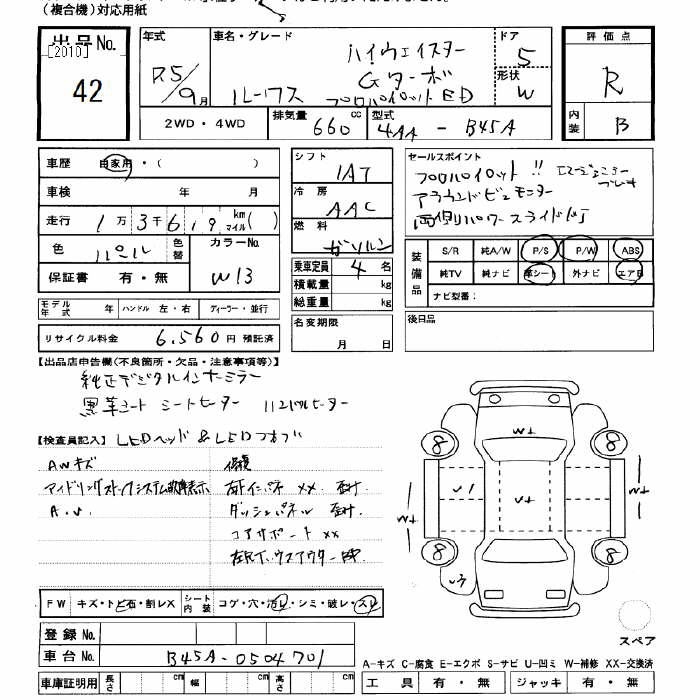 (複合機)対応用紙
出品No.
[2010]
42
年式
R5/9月
車名・グレード
ハイウェイスター
Gターボ
ルークス プロパイロットED
ドア
5
形状
W
評価点
R
内装
B
2WD・4WD
排気量 660 cc
型式 4AA - B45A
車歴 自家用・( )
車検 年 月
走行 1万3千6 19 km マイル( )
色 パール 色替
カラーNo. W13
保証書 有・無
モデル年式 年 ハンドル 左・右 ディーラー・並行
リサイクル料金 6.560円 預託済
シフト
IAT
冷房
AAC
燃料
ガソリン
乗車定員 4名
積載量 kg
総重量 kg
名変期限
月 日
セールスポイント
プロパイロット!! エマージェンシーブレーキ
アラウンドビューモニター
両側パワースライドドア
装備品
S/R 純A/W P/S P/W ABS
純TV 純ナビ 革シート 外ナビ エアB
ナビ型番:
後日品
【出品店申告欄(不良箇所・欠品・注意事項等)】
純正デジタルインナーミラー
黒革シート シートヒーター ハンドルヒーター
【検査員記入】 LEDヘッド & LEDフォグ
AWキズ
アイドリングストップシステム故障表示
A.U.
修復
ダッシュパネル
コアサポート XX
FW キズ・トビ石・割レX
シート内装 コゲ・穴・汚レ・シミ・破レ・スレ
登録No.
車台No. B45A-0504701
車庫証明用 長さ cm 幅 cm 高さ cm
8
8
8
8
スペア
A-キズ C-腐食 E-エクボ S-サビ U-凹ミ W-補修 XX-交換済
工具 有・無 ジャッキ 有・無